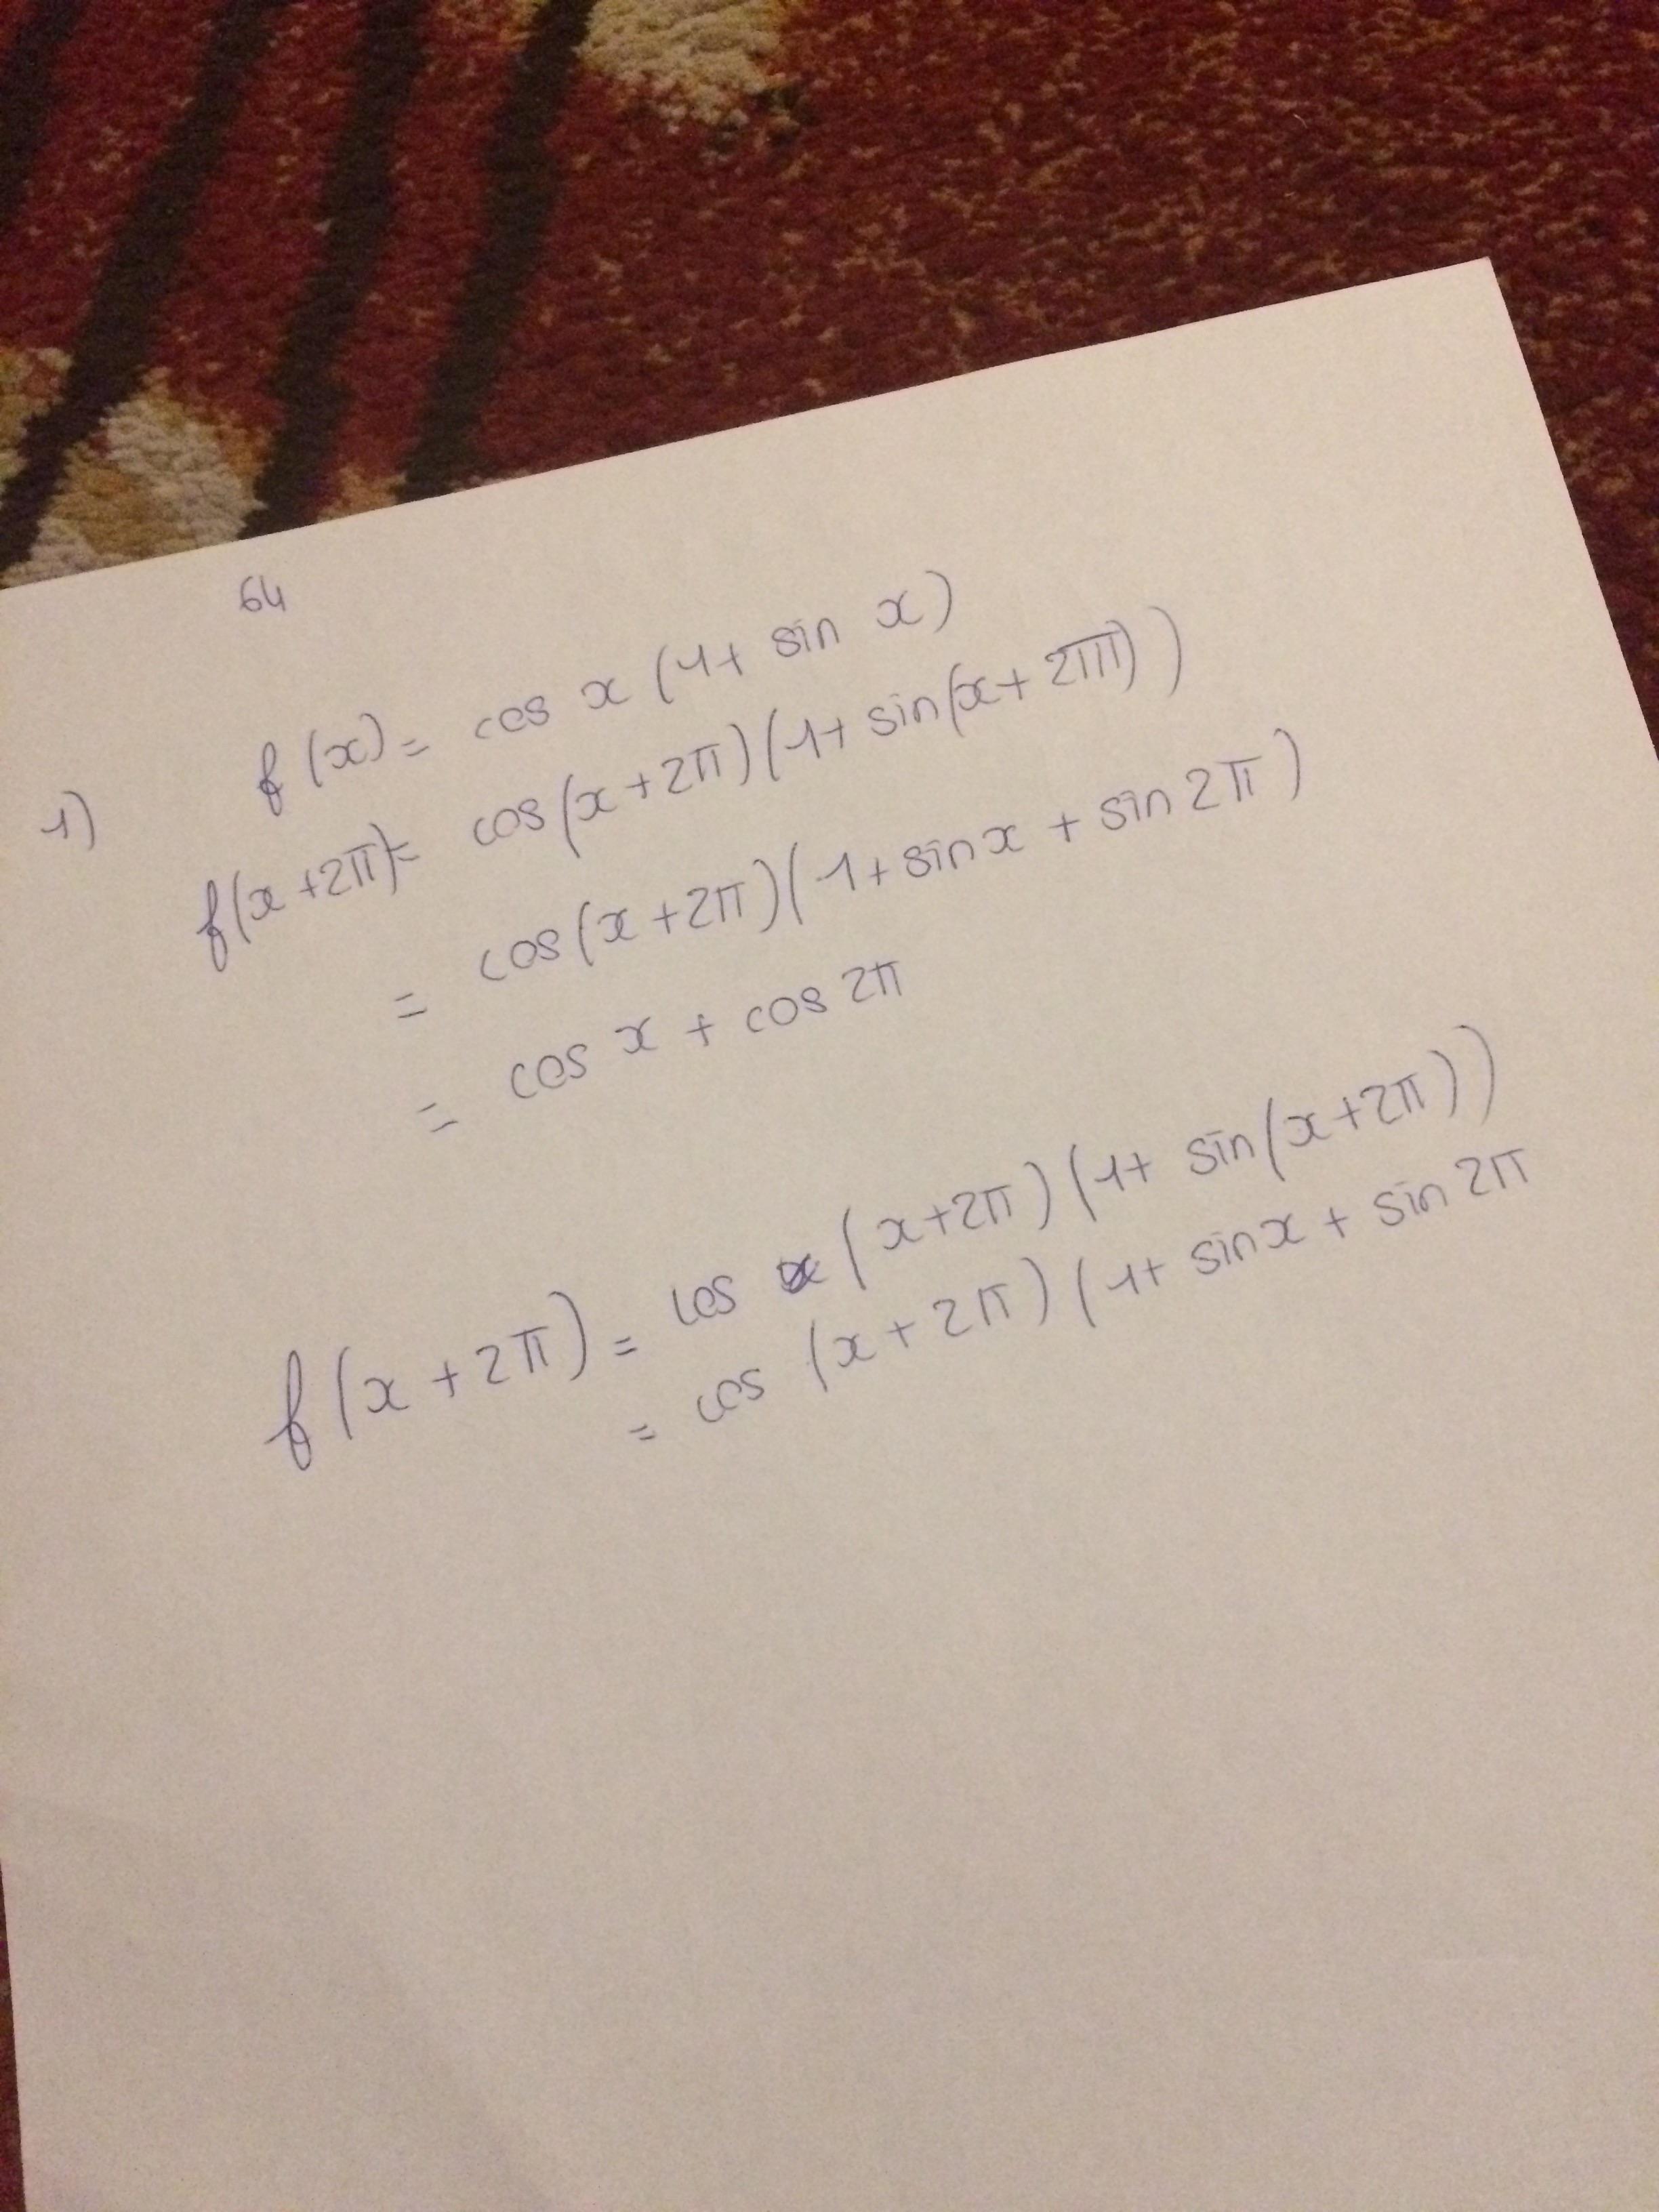 64
1) f(x) = cos x (1+ sin x)
f(x+2π) = cos(x+2π)(1+ sin(x+2π))
= cos(x+2π)(1+ sin x + sin 2π)
= cos x + cos 2π
f(x+2π) = cos (x+2π)(1+ sin(x+2π))
= cos (x+2π)(1+ sin x + sin 2π